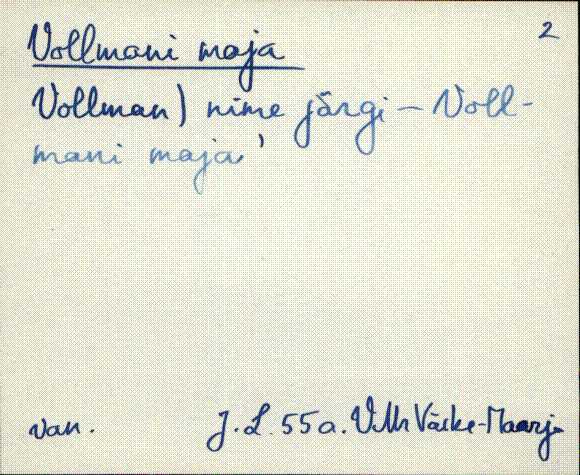 2
Vollmani maja
Vollman) nime järgi – Voll-
mani maja'
van. J. L. 55a. V.Mr Väike-Maarja